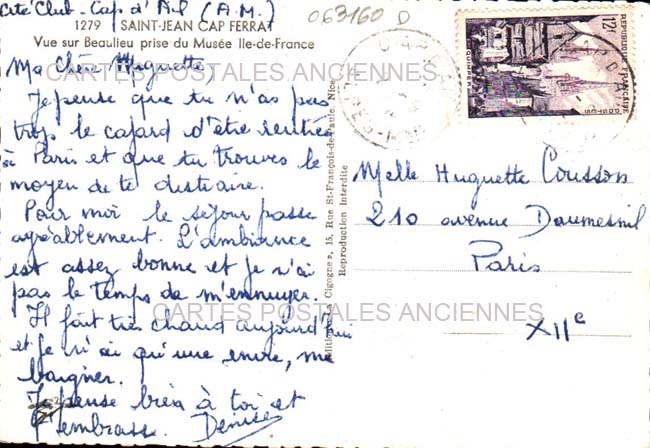 Cité Club - Cap d'Ail (A.M.)
063160 D
1279 SAINT-JEAN CAP FERRAT
Vue sur Beaulieu prise du Musée Ile-de-France
Ma Chère Huguette,
Je pense que tu n'as pas
trop le cafard d'être rentrée
à Paris et que tu trouves le
moyen de te distraire.
Pour moi le séjour passe
agréablement. L'ambiance
est assez bonne et je n'ai
pas le temps de m'ennuyer.
Il fait très chaud aujourd'hui
et je n'ai qu'une envie, me
baigner.
Je pense bien à toi et
t'embrasse. Denise
Editions La Cigogne, 15, Rue St-François-de-Paule, Nice
Reproduction Interdite
12f
REPUBLIQUE FRANÇAISE
POSTES
QUIMPER
Melle Huguette Cousson
210 avenue Daumesnil
Paris
XIIe
CARTES POSTALES ANCIENNES
CARTES POSTALES ANCIENNES